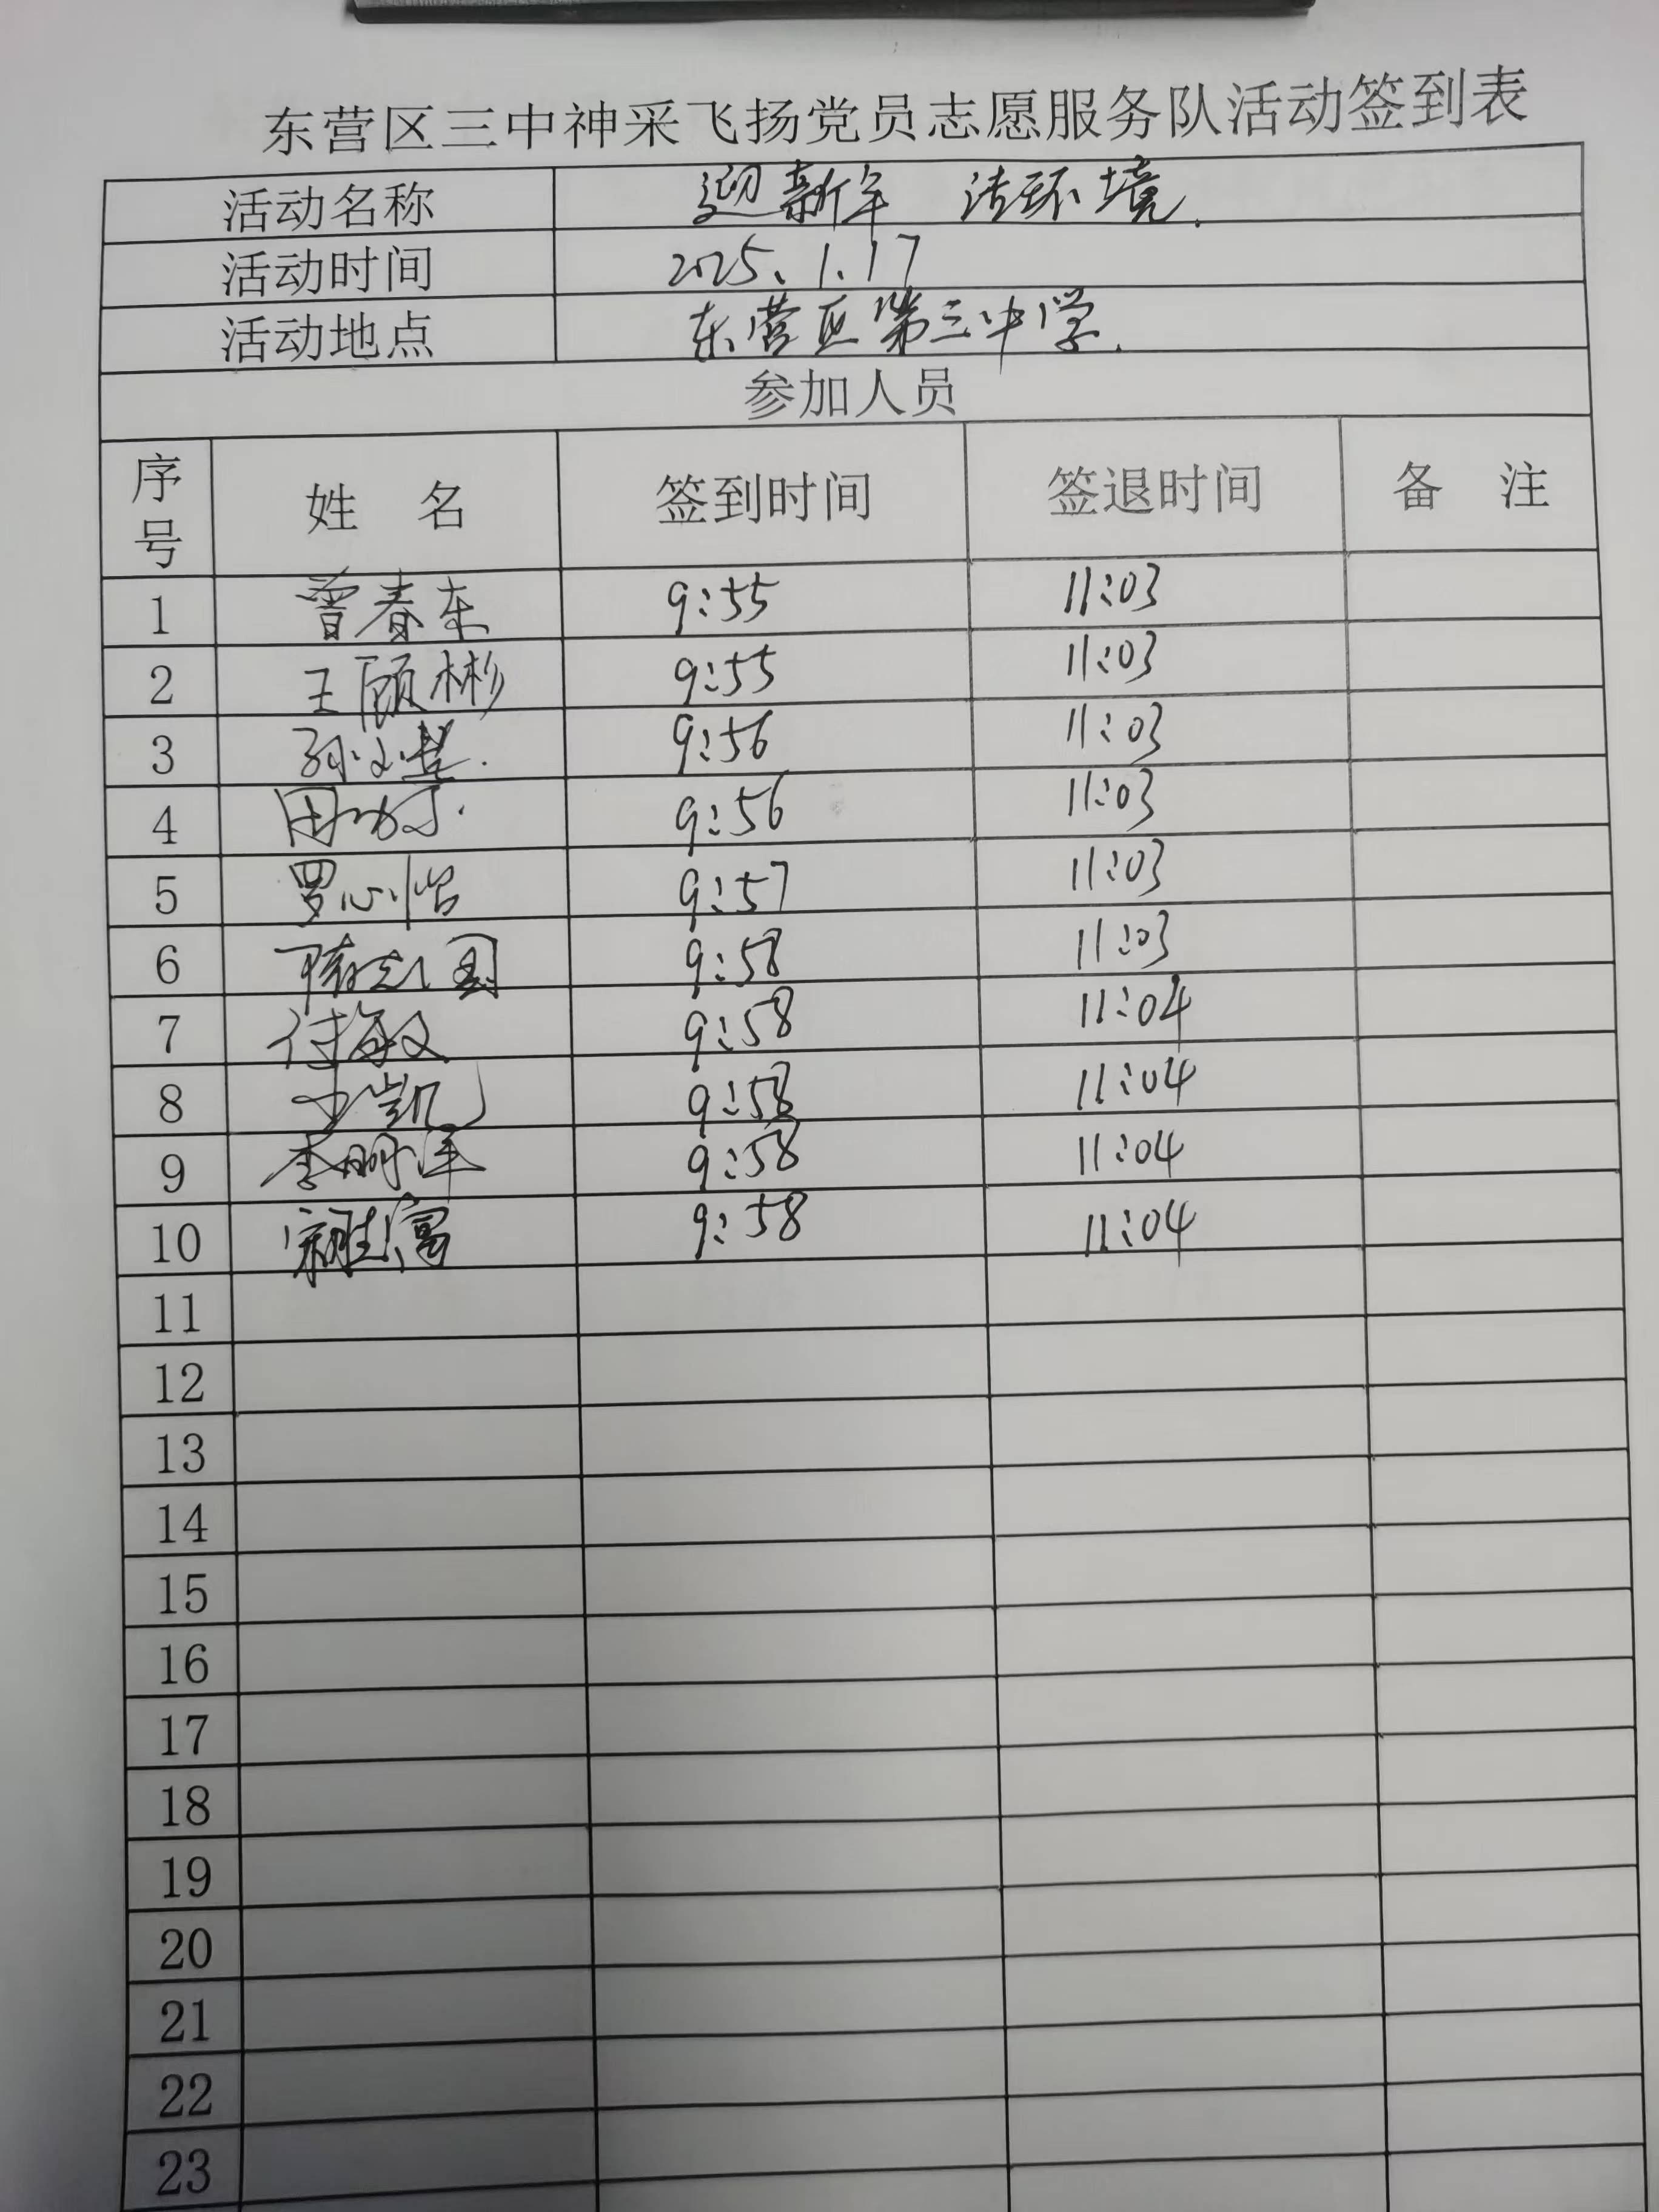 东营区三中神采飞扬党员志愿服务队活动签到表
活动名称 迎新年 洁环境.
活动时间 2025、1、17
活动地点 东营区第三中学.
参加人员
序号 姓 名 签到时间 签退时间 备 注
1 曾春东 9:55 11:03
2 王颐彬 9:55 11:03
3 9:56 11:03
4 9:56 11:03
5 罗心怡 9:57 11:03
6 9:58 11:03
7 付敏 9:58 11:04
8 王凯 9:58 11:04
9 李明泽 9:58 11:04
10 9:58 11:04
11
12
13
14
15
16
17
18
19
20
21
22
23